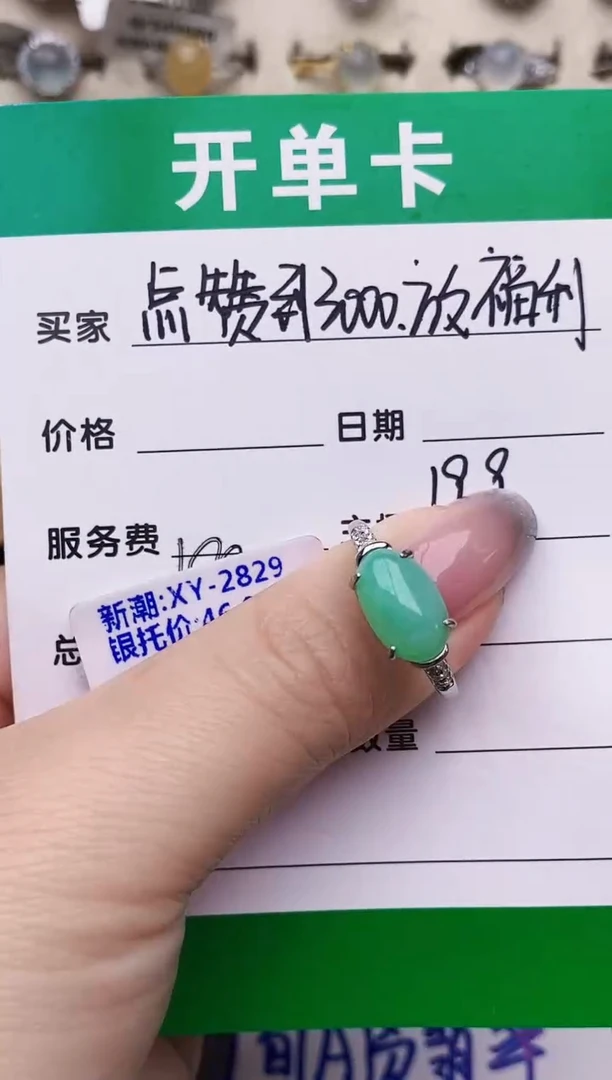 开单卡
买家 点赞到3000.放福利
价格 日期
198
服务费
新潮:XY-2829
银托价:46
总
数量